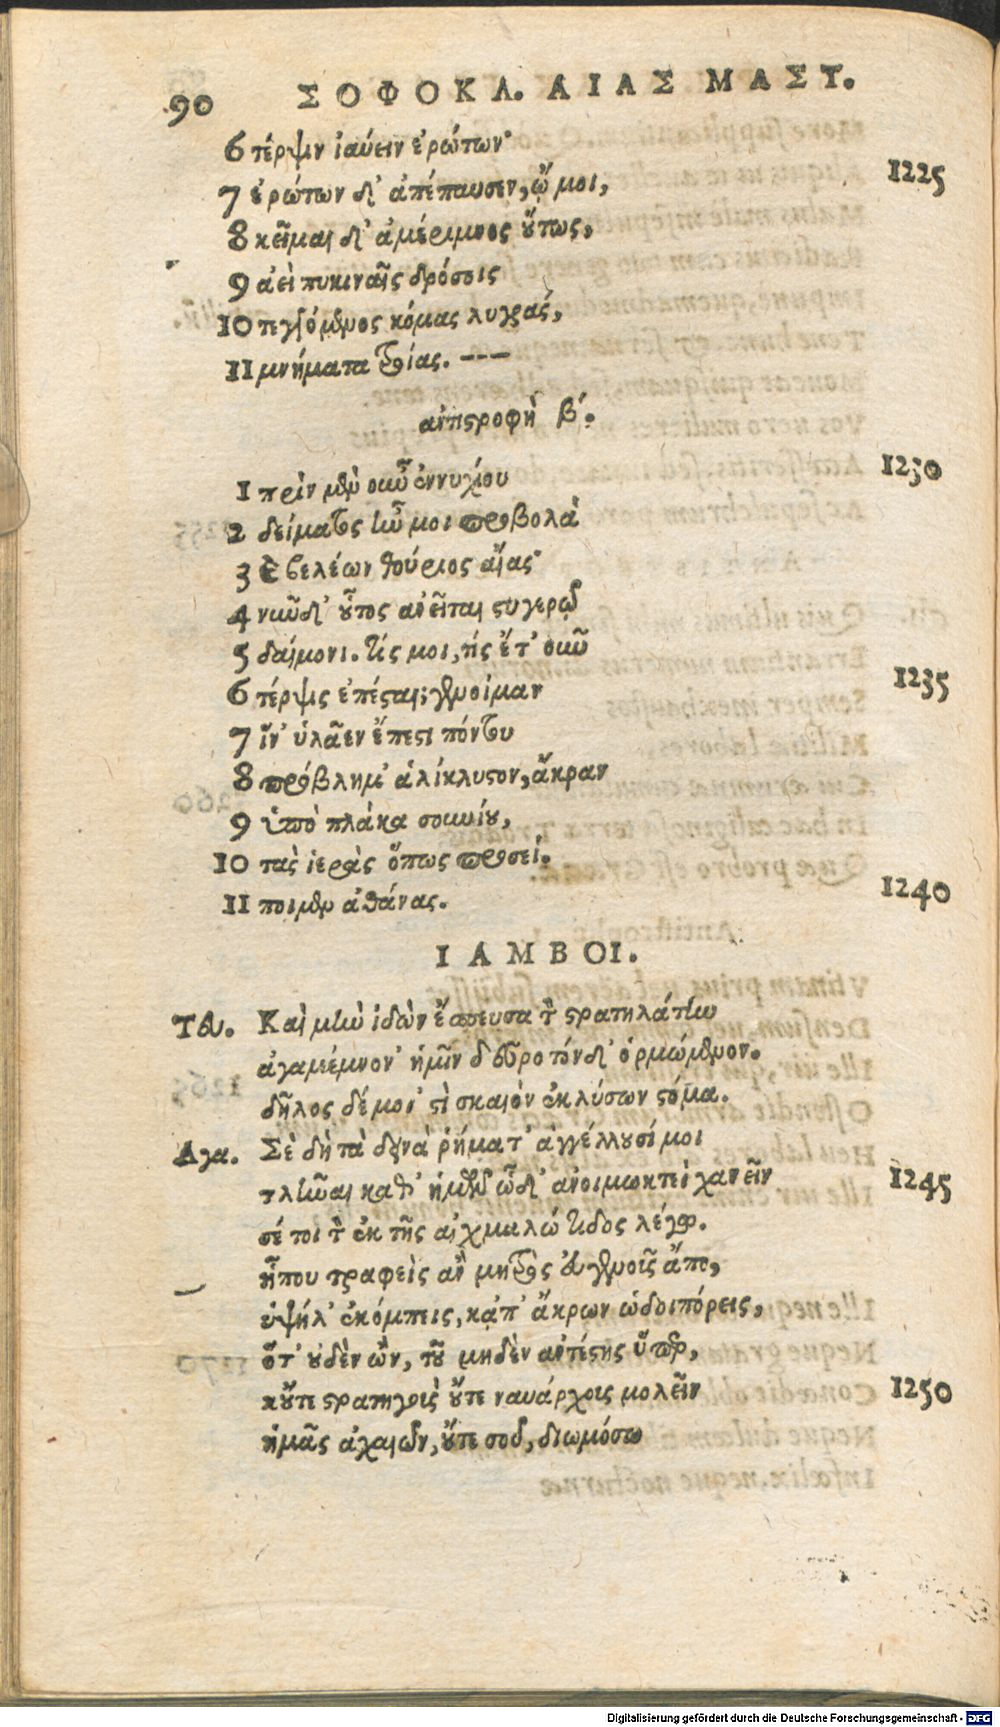 90 ΣΟΦΟΚΛ. ΑΙΑΣ ΜΑΣΤ.
6 τέρψιν ἰαύειν ἐρώτων·
7 ἐρώτων δ' ἀπέπαυσεν, ᾤ μοι, 1225
8 κεῖμαι δ' ἀμέριμνος οὕτως,
9 ἀεὶ πυκιναῖς δρόσοις
10 τεγγόμενος κόμας λυγρᾶς,
11 μνήματα τροίας. ---
ἀντιστροφὴ β'.
1 πρὶν μὲν οὖν ἐννυχίου 1230
2 δείματος ἦν μοι προβολὰ
3 καὶ βελέων θούριος αἴας·
4 νῦν δ' οὗτος ἀνεῖται στυγερῷ
5 δαίμονι. τίς μοι, τίς ἔτ' οὖν
6 τέρψις ἐπέσται; γενοίμαν 1235
7 ἵν' ὑλᾶεν ἔπεστι πόντου
8 πρόβλημ' ἁλίκλυστον, ἄκραν
9 ὑπὸ πλάκα σουνίου,
10 τὰς ἱερὰς ὅπως προσεί-
11 ποιμεν ἀθάνας. 1240
ΙΑΜΒΟΙ.
Τευ. Καὶ μὴν ἰδὼν ἔσπευσα τὸν στρατηλάτην
ἀγαμέμνον' ἡμῖν δεῦρο τόνδ' ὁρμώμενον.
δῆλος δέ μοί 'στὶ σκαιὸν ἐκλύσων στόμα.
Αγα. Σὲ δὴ τὰ δεινὰ ῥήματ' ἀγγέλλουσί μοι
τλῆναι καθ' ἡμῶν ὧδ' ἀνοιμωκτεὶ χανεῖν 1245
σέ τοι τὸν ἐκ τῆς αἰχμαλώτιδος λέγω.
ἦπου τραφεὶς ἂν μητρὸς εὐγενοῦς ἄπο,
ὑψήλ' ἐκόμπεις, κἀπ' ἄκρων ὡδοιπόρεις,
ὅτ' οὐδὲν ὢν, τοῦ μηδὲν ἀντέστης ὕπερ,
κοὔτε στρατηγοὺς οὔτε ναυάρχους μολεῖν 1250
ἡμᾶς ἀχαιῶν, οὔτε σοῦ, διωμόσω
Digitalisierung gefördert durch die Deutsche Forschungsgemeinschaft - DFG